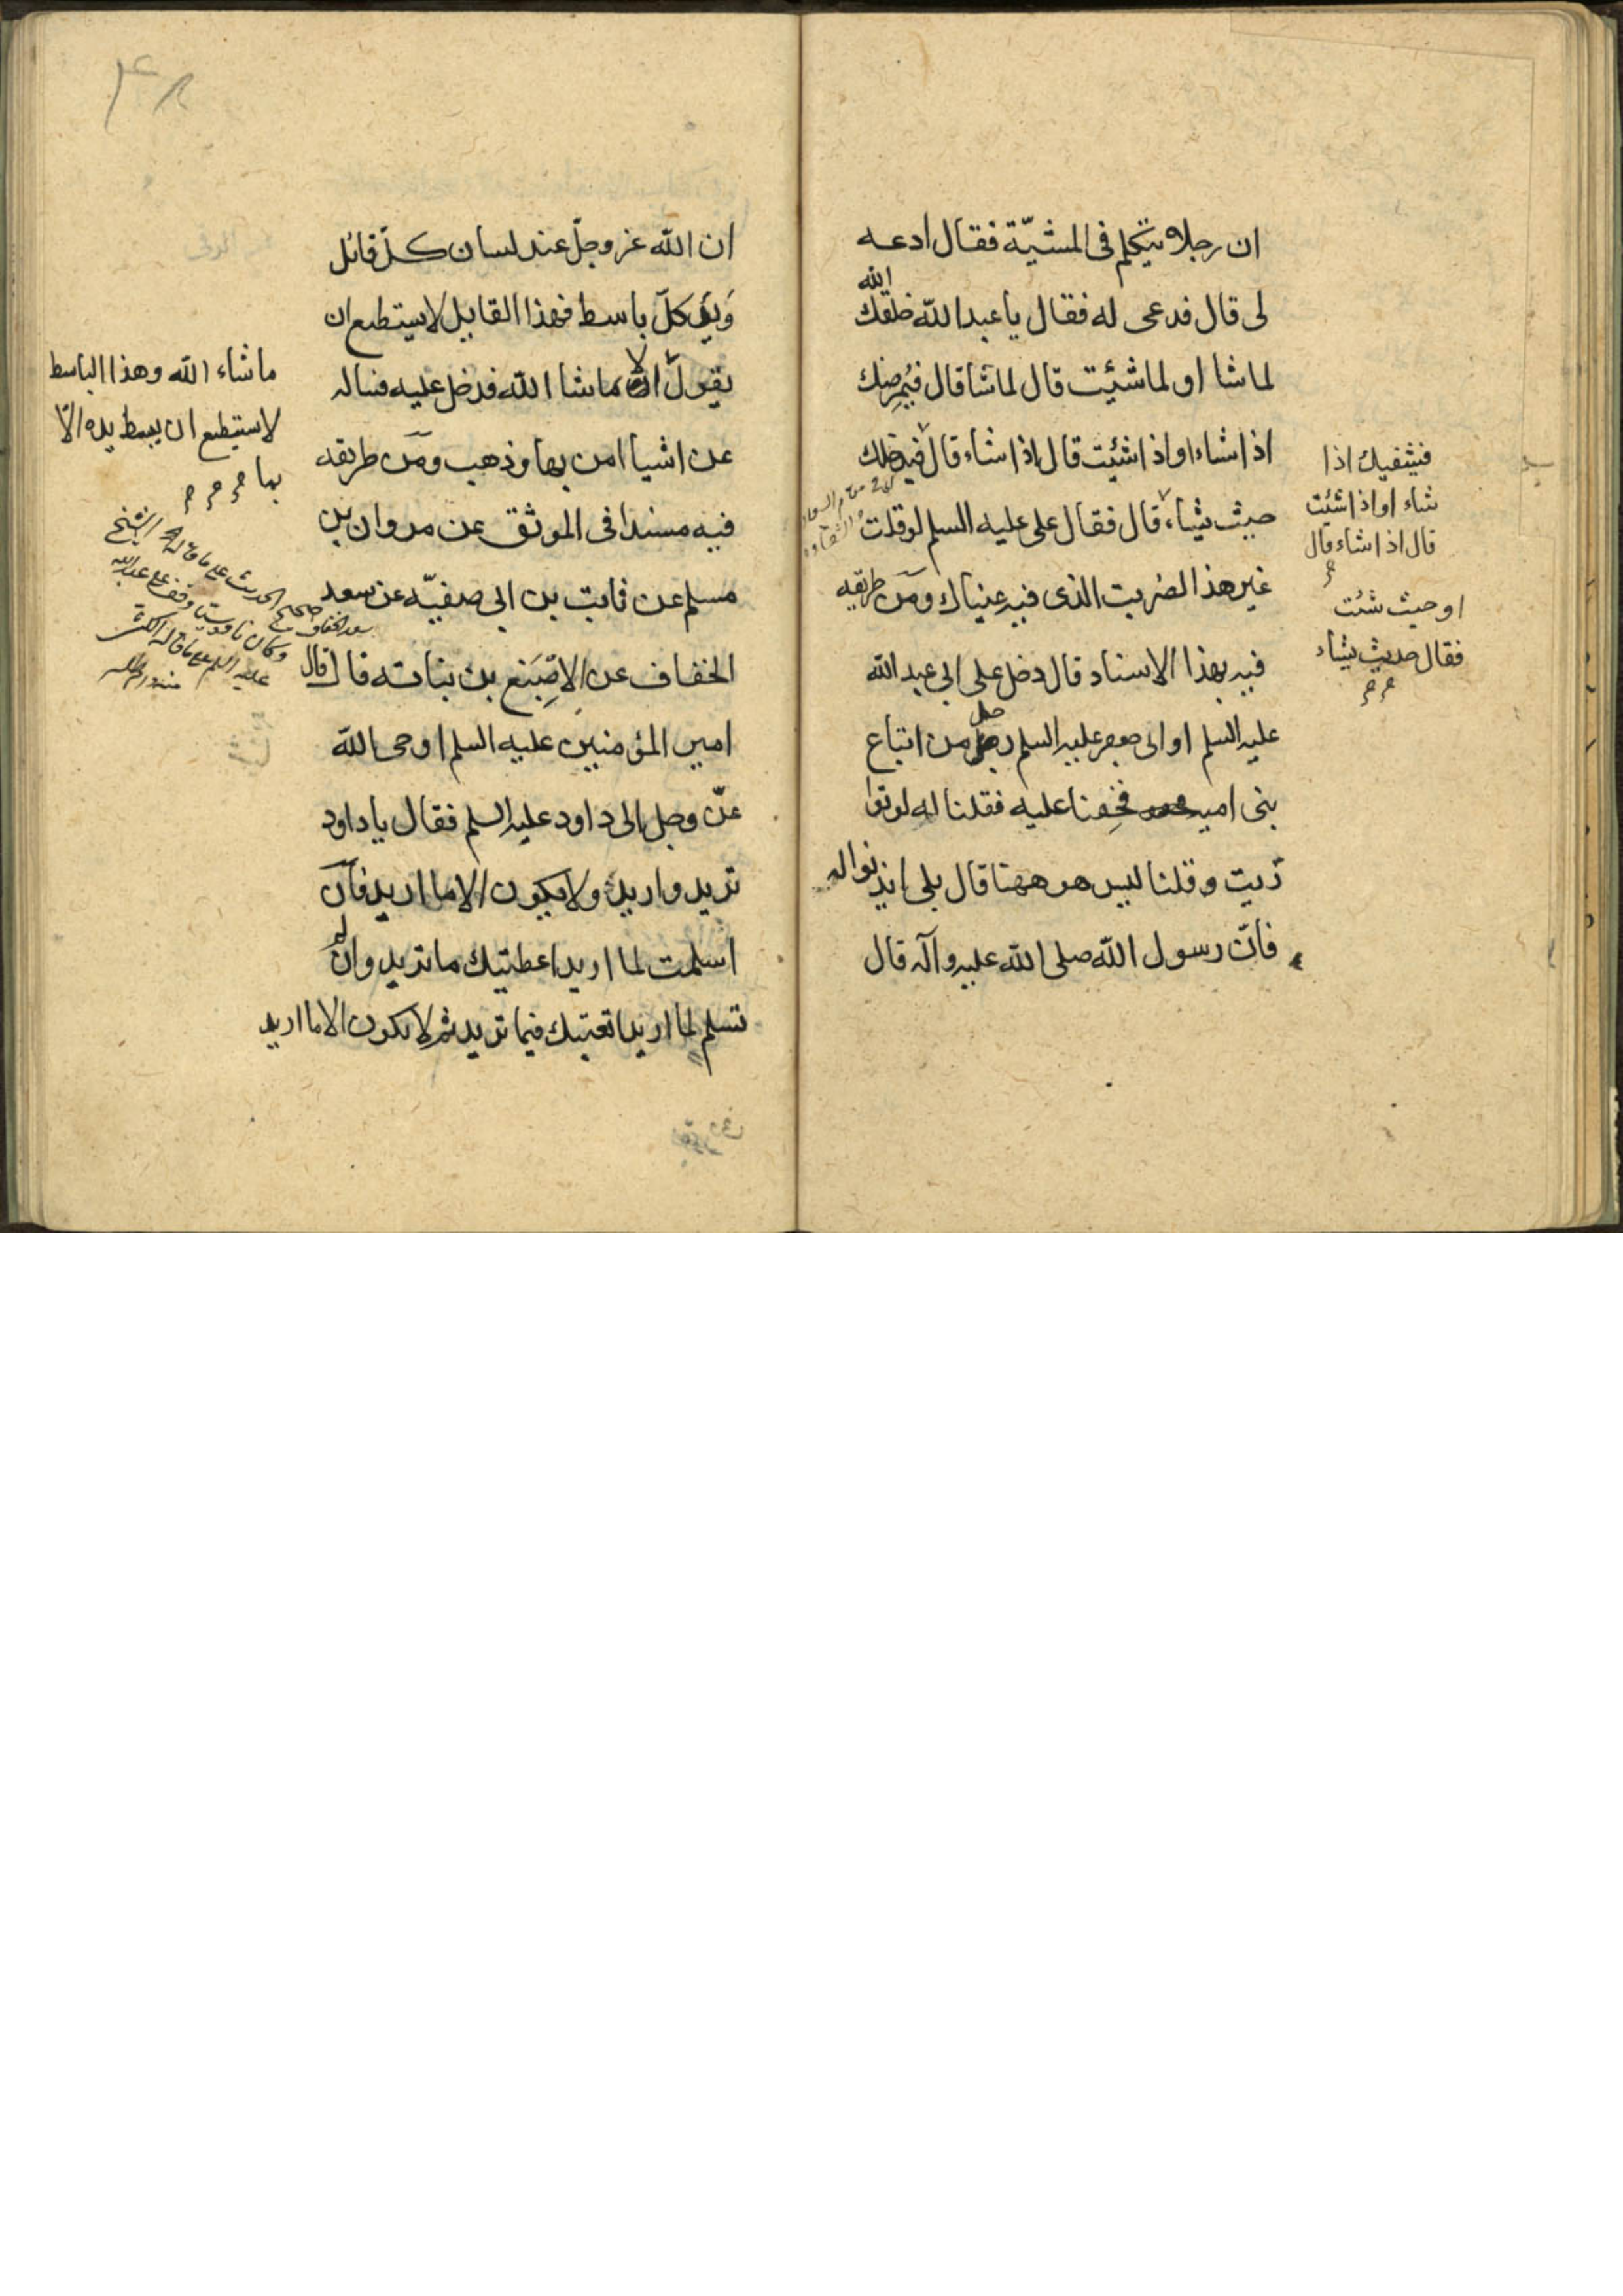 ان رجلا يتكلم فى المشيّة فقال ادعه
لى قال فدعى له فقال يا عبد الله خلقك الله
لما شا او لما شئيت قال لما شا قال فيُمرِضك
اذا شاء او اذا شئيت قال اذا شاء قال فيدخلك
حيث يشاء قال فقال على عليه السلم لو قلت
غير هذا لضربت الذى فيه عيناك ومن طريقه
فيه بهذا الاسناد قال دخل على ابى عبد الله
عليه السلم او ابى جعفر عليه السلم رجل من اتباع
بنى اميه فخِفنا عليه فقلنا له لو توا
رَيت وقلنا ليس هو ههنا قال بلى ايذنوا له
فانّ رسول الله صلى الله عليه وآله قال
فيشفيك اذا
شاء او اذا شئت
قال اذا شاء قال
او حيث شئت
فقال حيث يشاء
ان الله عز وجلّ عند لسان كلّ قائل
وَيدِ كلّ باسط فهذا القايل لا يستطيع ان
يقول الا ما شا الله فدخل عليه فساله
عن اشيا امن بها وذهب ومن طريقه
فيه مسندا فى الموثق عن مروان بن
مسلم عن ثابت بن ابى صفيّه عن سعد
الخفاف عن الاصِبَغ بن نباته قال قال
امير المؤمنين عليه السلم اوحى الله
عزّ وجل الى داود عليه السلم فقال يا داود
تريد واريد ولا يكون الا ما اريد فان
اسلمت لما اريد اعطيتك ما تريد وان لم
تسلم لما اريد اتعبتك فيما تريد ثم لا يكون الا ما اريد
ما شاء الله وهذا الباسط
لا ستيطيع ان يبسط يده الّا
بها